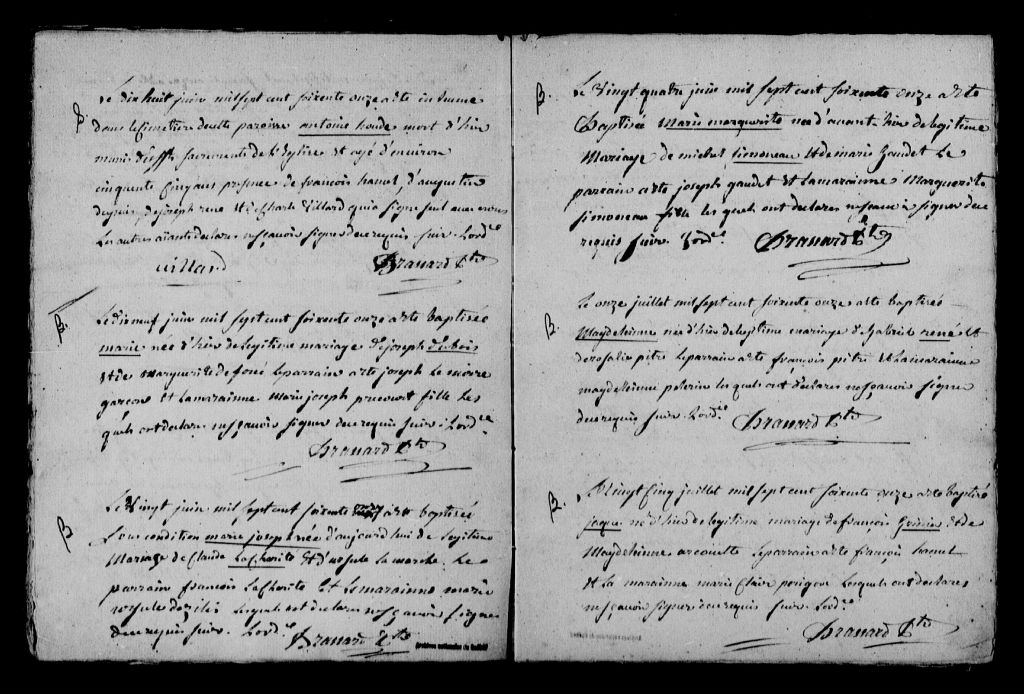 Le dix huit juin mil sept cent soixente onze a ete in hume
dans le cimetiere de cette paroisse antoine houde mort d'hier
muni sacrements de l'Eglise et agé d'environ
cinquente cinq ans presence de françois hamel, d'augustin
dupuis de joseph rené et de charle villard qui a signé seul avec nous
les autres aiants declares ne sçavoir signer de ce requis suiv. l'ord.ce
villard Brassard Ptre
B
Le dix neuf juin mil sept cent soixente onze a ete baptisée
marie née d'hier de legitime mariage de joseph dubois
et de marguerite le parrain a ete joseph le
garcon et la marainne marie joseph fille les
quels ont declares ne sçavoir signer de ce requis suiv. l'ord.ce
Brassard Ptre
B
Le vingt juin mil sept cent soixente a ete baptisée
sous condition marie josep née d'aujourd'hui de legitime
Mariage de Claude la Charite et d'ursule la marche. Le
parrain francois la Charite et la marainne marie
ursule lesquels ont declares ne sçavoir signer
de ce requis suiv. l'ord.ce Brassard Ptre
B.
Le vingt quatre juin mil sept cent soixente onze a ete
Baptisée Marie marguerite née d'avant hier de legitime
Mariage de michel simoneau et de marie Gaudet Le
parrain a ete joseph gaudet et la marainne Marguerite
simoneau fille les quels ont declares ne sçavoir signer de ce
requis suiv. l'ord.ce Brassard Ptre
B.
Le onze juillet mil sept cent soixente onze a ete baptisée
Magdeleinne née d'hier de legitime mariage de Gabriel rené et
de rosalie pitre le parrain a ete françois pitre et la marainne
magdeleinne pelerin les quels ont declares ne sçavoir signe
de ce requis suiv. l'ord.ce Brassard Ptre
B.
Le vingt cinq juillet mil sept cent soixente onze a ete baptisé
jacque né d'hier de legitime mariage de francois et de
Magdeleinne arcouette le parrain a ete françois hamel
et la marainne marie Claire perigord lesquels ont declares
ne sçavoir signer de ce requis suiv. l'ord.ce
Brassard Ptre
Archives nationales du Québec